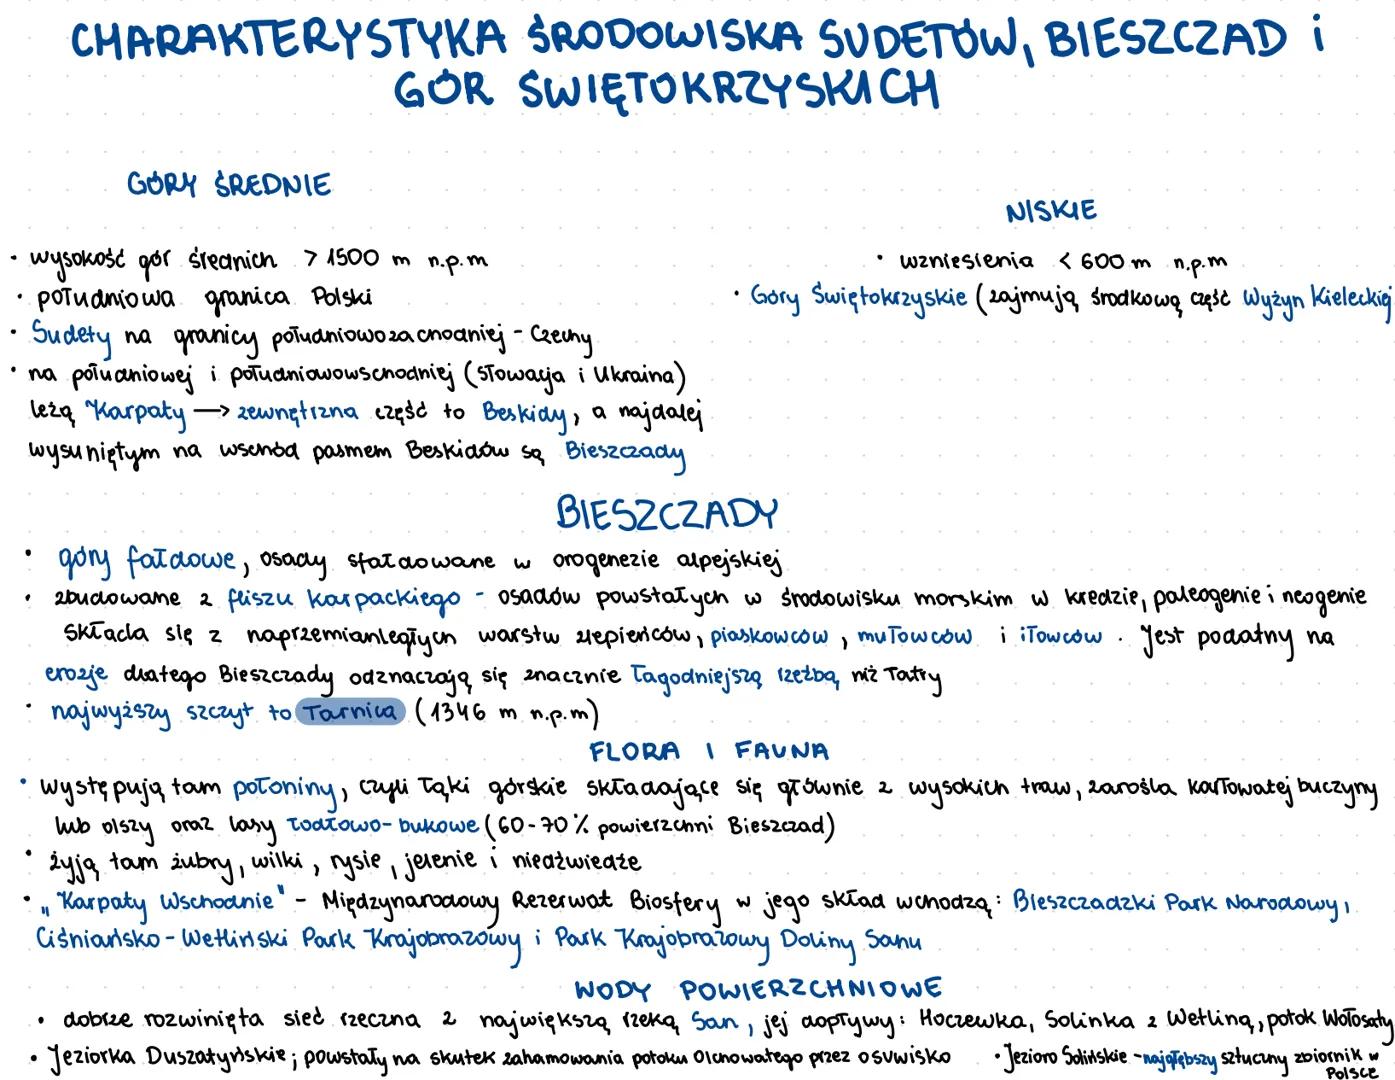 CHARAKTERYSTYKA ŚRODOWISKA SUDETÓW, BIESZCZAD i
GÓR ŚWIĘTOKRZYSKICH
GÓRY ŚREDNIE
NISKIE
• wysokość gór średnich > 1500 m n.p.m
• południowa granica Polski
• Sudety na granicy południowozachodniej - Czechy
• na południowej i południowowschodniej (Słowacja i Ukraina)
leżą Karpaty → zewnętrzna część to Beskidy, a najdalej
wysuniętym na wschód pasmem Beskidów są Bieszczady
• wzniesienia < 600 m n.p.m
• Góry Świętokrzyskie (zajmują środkową część Wyżyn Kieleckiej
BIESZCZADY
• góry fałdowe, osady sfałdowane w orogenezie alpejskiej
• zbudowane z fliszu karpackiego - osadów powstałych w środowisku morskim w kredzie, paleogenie i neogenie
składa się z naprzemianległych warstw zlepieńców, piaskowców, mułowców i iłowców. Jest podatny na
erozje dlatego Bieszczady odznaczają się znacznie łagodniejszą rzeźbą niż Tatry
• najwyższy szczyt to Tarnica (1346 m n.p.m)
FLORA I FAUNA
• występują tam połoniny, czyli łąki górskie składające się głównie z wysokich traw, zarośla karłowatej buczyny
lub olszy oraz lasy jodłowo-bukowe (60-70% powierzchni Bieszczad)
• żyją tam żubry, wilki, rysie, jelenie i niedźwiedzie
• „Karpaty Wschodnie" - Międzynarodowy Rezerwat Biosfery w jego skład wchodzą: Bieszczadzki Park Narodowy,
Ciśniańsko-Wetliński Park Krajobrazowy i Park Krajobrazowy Doliny Sanu
WODY POWIERZCHNIOWE
• dobrze rozwinięta sieć rzeczna z największą rzeką San, jej dopływy: Hoczewka, Solinka z Wetliną, potok Wołosaty
• Jeziorka Duszatyńskie; powstały na skutek zahamowania potoku Olchowatego przez osuwisko • Jezioro Solińskie - najgłębszy sztuczny zbiornik w
Polsce